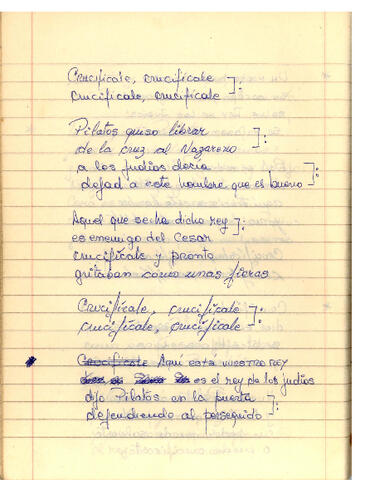 Crucificale, crucificale ]:
crucificale, crucificale
Pilatos quiso librar ]:
de la cruz al Nazareno
a los judios decia ]:
dejad a este hombre que es bueno
Aquel que se ha dicho rey ]:
es enemigo del Cesar
crucificale y pronto
gritaban como unas fieras
Crucificale, crucificale ]:
crucificale, crucificale
* Crucificale Aqui está vuestro REY
es el rey de los judios
dijo Pilatos en la puerta ]:
defendiendo al perseguido